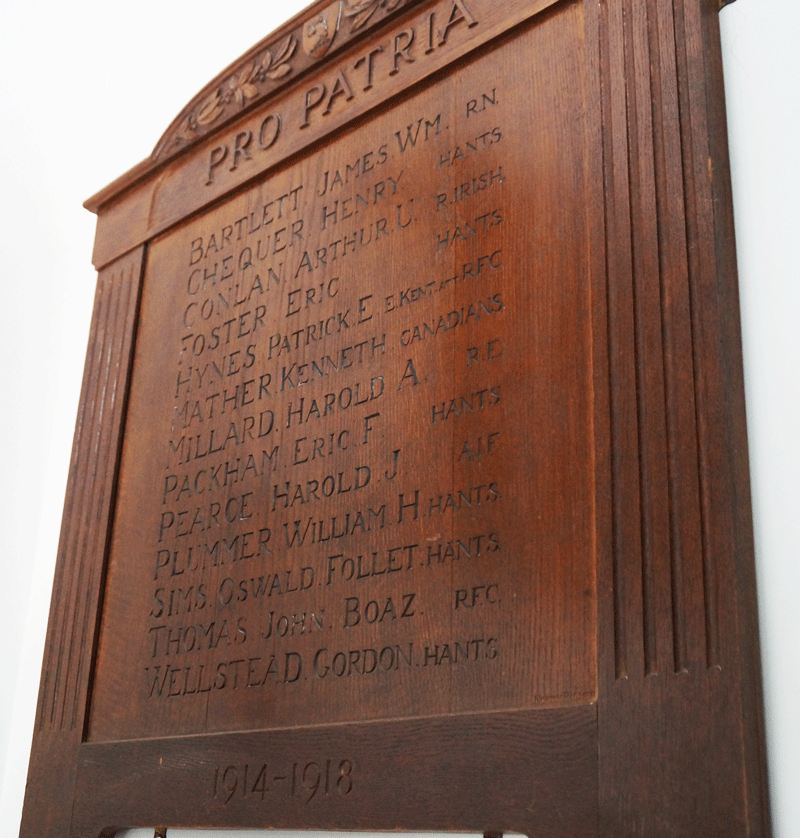 PRO PATRIA
BARTLETT. JAMES. WM. R.N.
CHEQUER. HENRY HANTS
CONLAN. ARTHUR. U. R. IRISH.
FOSTER ERIC HANTS
HYNES PATRICK. E E. KENT. ATT RFC
MATHER KENNETH CANADIANS.
MILLARD. HAROLD A. R.E.
PACKHAM. ERIC. F. HANTS
PEARCE. HAROLD. J. AIF
PLUMMER WILLIAM. H. HANTS.
SIMS. OSWALD. FOLLET. HANTS
THOMAS JOHN. BOAZ. RFC.
WELLSTEAD. GORDON. HANTS
1914-1918